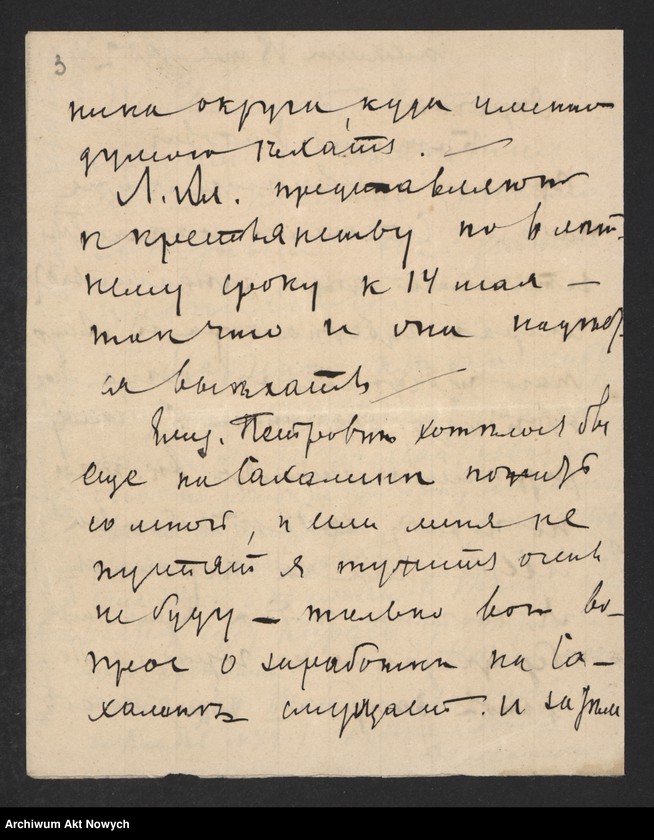 3
ника округа, куда именно
думаю ѣхать. —
Л. Ал. представляют
к крестьянству по в лѣт-
нему сроку к 14 мая —
так что и она
ся выѣхать —
Петровичу хотѣлось бы
еще на Сахалинѣ пожить
со мной, и если меня не
пустят я тужить очень
не буду — только вот во-
прос о заработкѣ на Са-
халинѣ смущает. И
Archiwum Akt Nowych